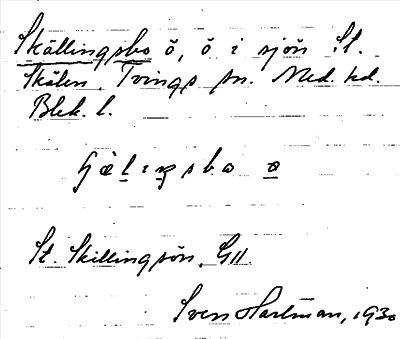 Skällingsbo ö, ö i sjön St.
Skälen. Tvings sn. Med. hd.
Blek. l.
St. Skillingsön, GII.
Sven Hartman, 1930